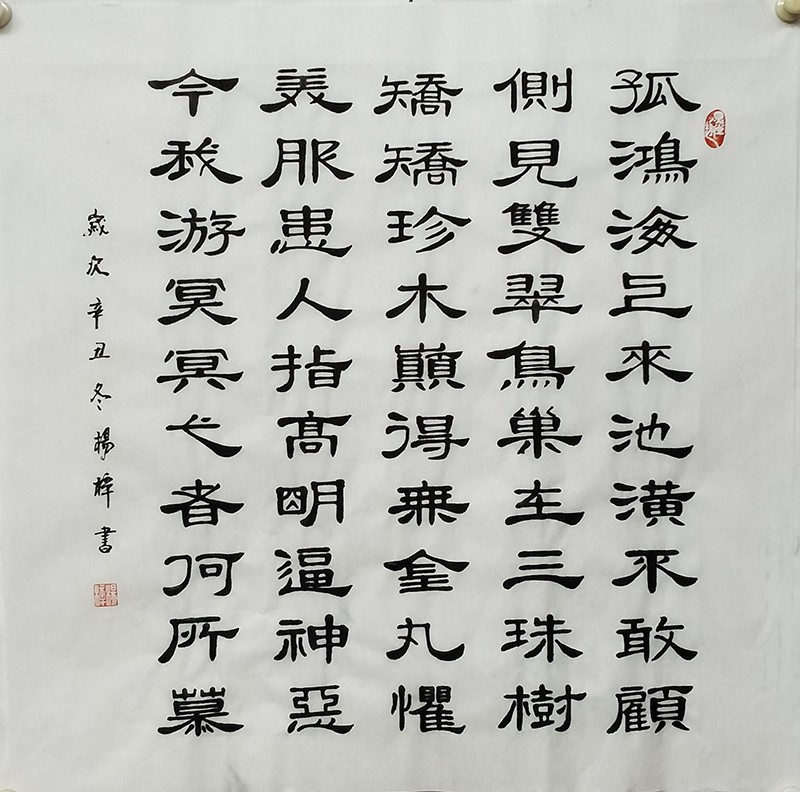 孤鴻海上來池潢不敢顧
側見雙翠鳥巢在三珠樹
矯矯珍木巔得無金丸懼
美服患人指高明逼神惡
今我游冥冥弋者何所慕
歲次辛丑冬楊梓書